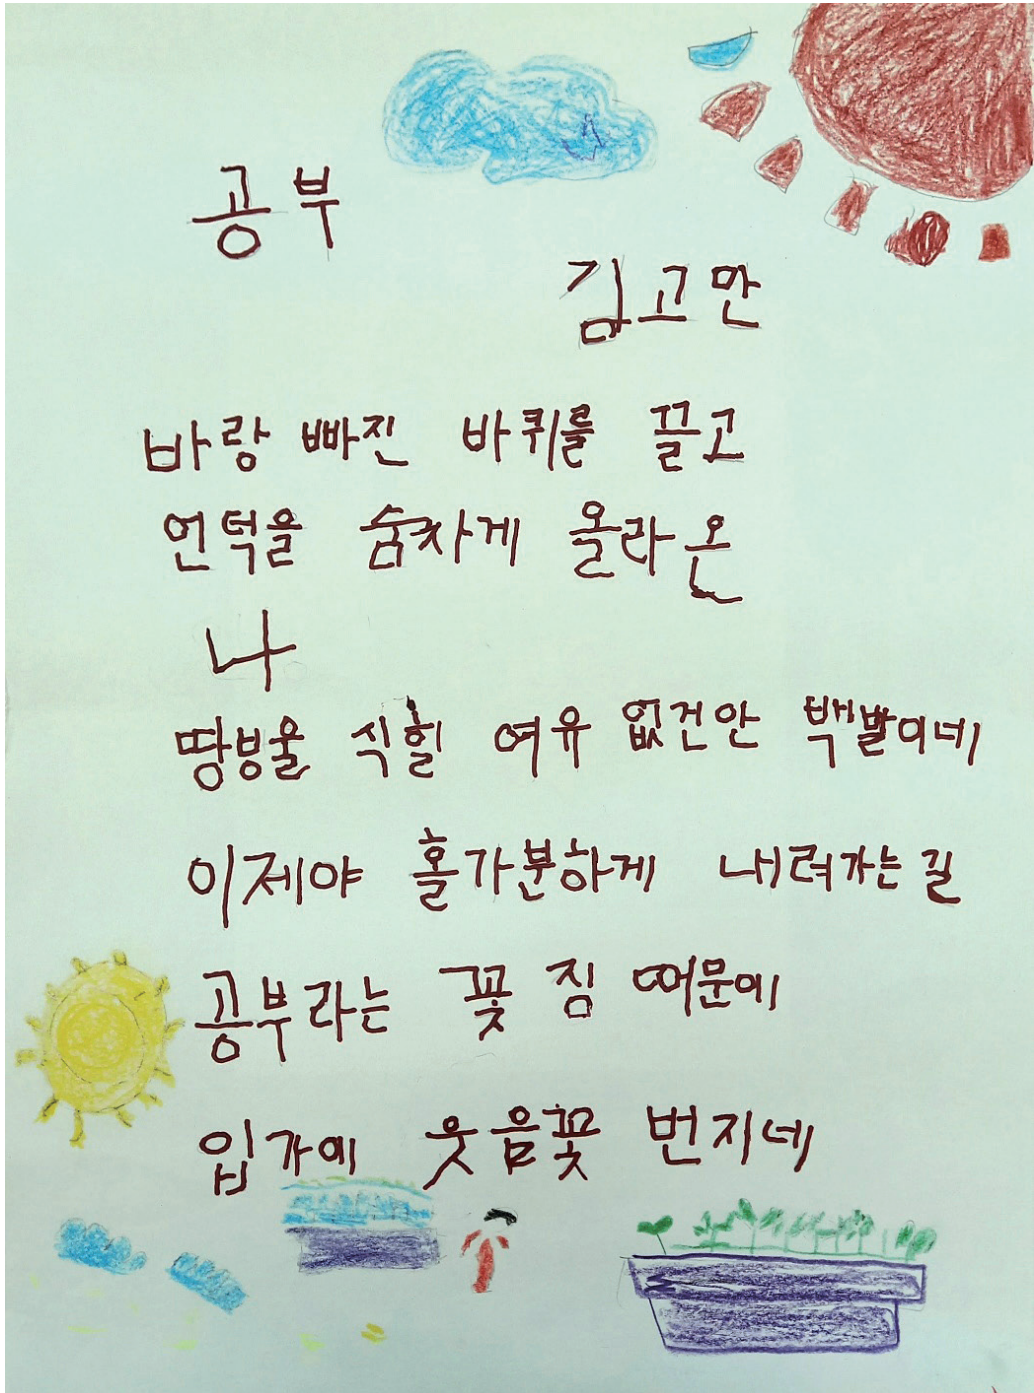 공부
김고만
바랑 빠진 바퀴를 끌고
언덕을 숨차게 올라온
나
땅방울 식힐 여유 없건만 백발이네
이제야 홀가분하게 내려가는 길
공부라는 꽃 짐 때문에
입가에 웃음꽃 번지네